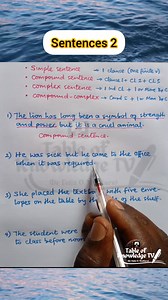 Sentences 2
• Simple sentence → 1 clause (one finite v)
• Compound sentence →
• Complex sentence →
• Compound-complex →
1) The lion has long been a symbol of strength
and power but it is a cruel animal.
Compound sentence.
2) He was sick but he came to the office
when it was required.
3) She placed the textbook with five enve-
lopes on the table by the of the shelf.
4) The students were
to class before
Table of
Knowledge TV